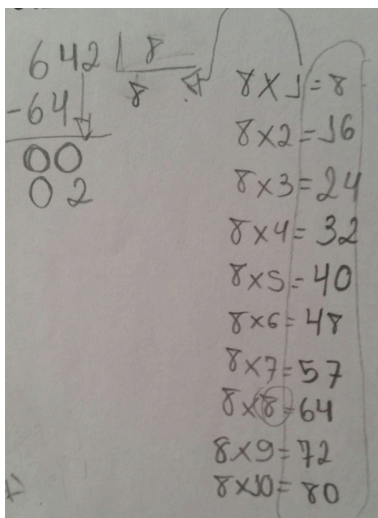 642 | 8
-64 8
00
02
8x1=8
8x2=16
8x3=24
8x4=32
8x5=40
8x6=48
8x7=57
8x8=64
8x9=72
8x10=80